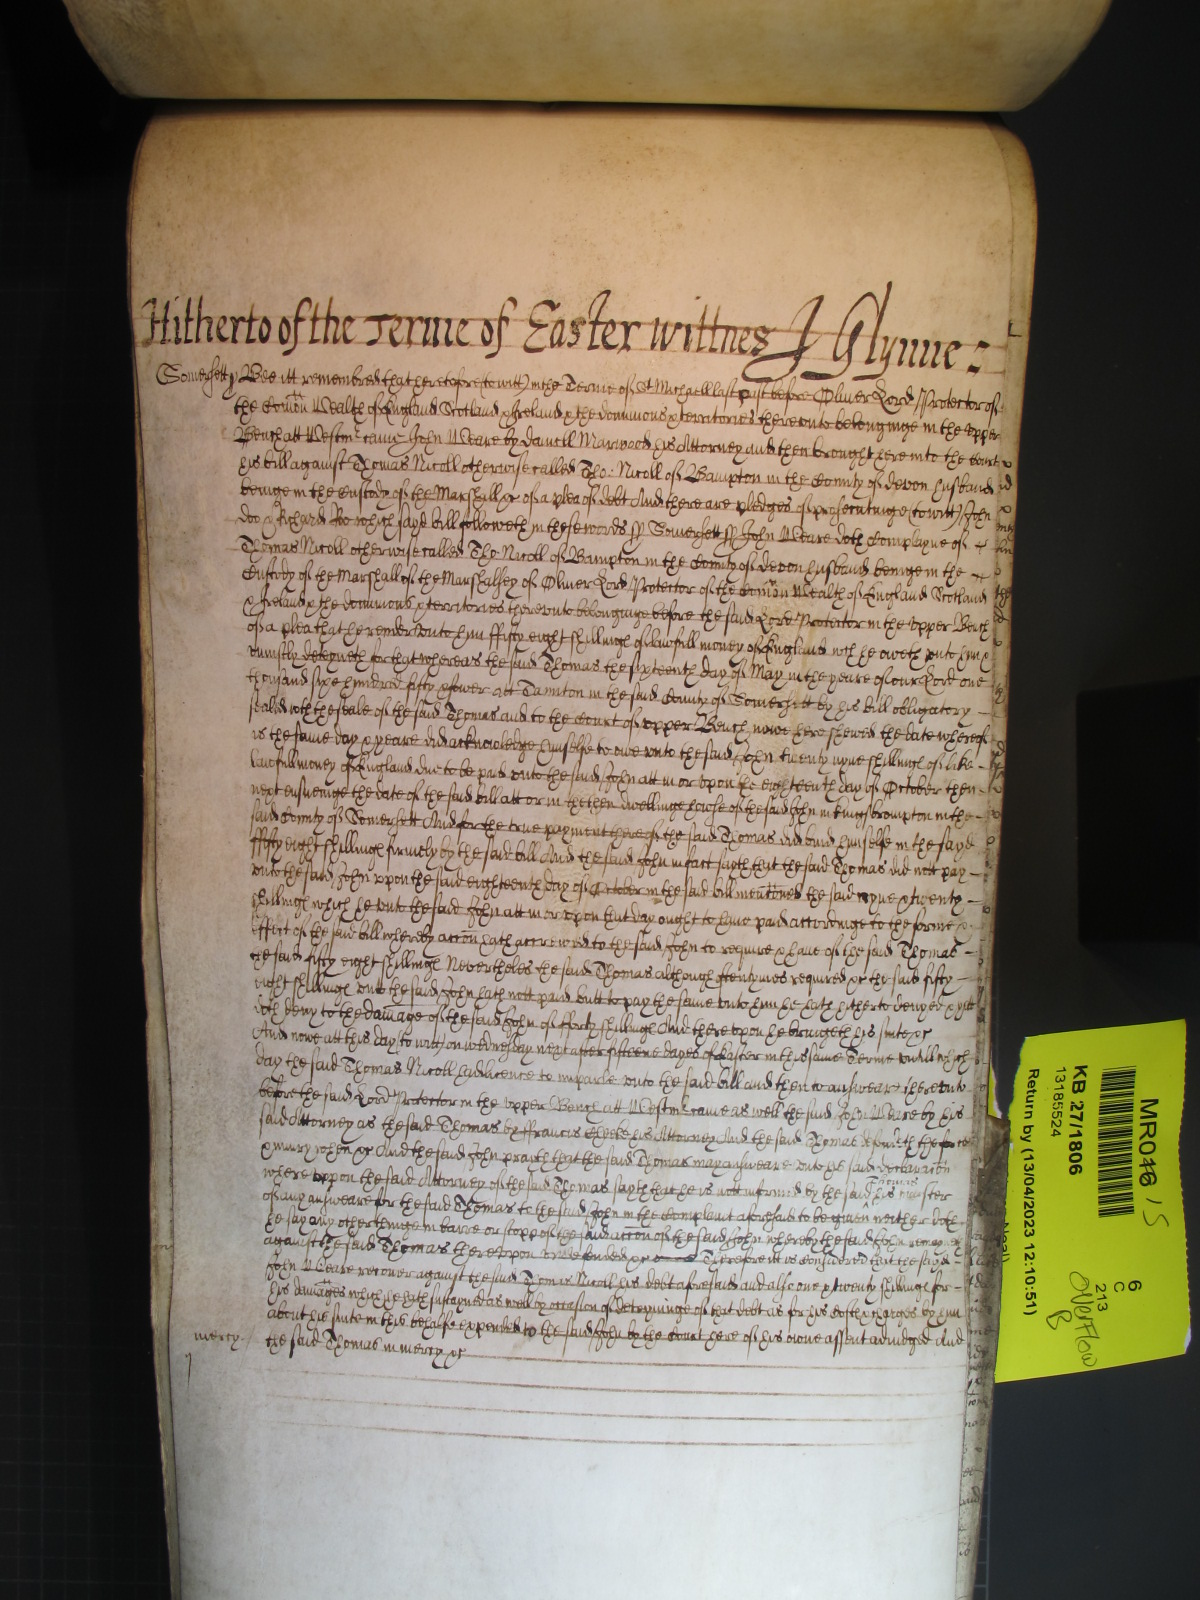 Hitherto of the Terme of Easter wittnes J Glynne
Somersett ss Bee itt remembred that heretofore (to witt) in the Terme of St Michaell last past before Oliver Lord Protector of
the Comon Wealth of England Scotland & Ireland & the dominions & territories thereunto belonginge in the Upper
Bench att Westmr came John Weare by Daniell Marwood his Attorney and then brought here into the Court
his bill against Thomas Nicoll otherwise called Tho: Nicoll of Bampton in the County of Devon husband
beinge in the Custody of the Marshall &c of a plea of debt And there are pledges of prosecutinge (to witt) John
Doo & Richard Roo which sayd bill followeth in these words ss Somersett ss John Weare doth Complayne of
Thomas Nicoll otherwise called Tho: Nicoll of Bampton in the County of Devon husband beinge in the
Custody of the Marshall of the Marshalsey of Oliver Lord Protector of the Comon Wealth of England Scotland
& Ireland & the dominions & territories thereunto belonginge before the said Lord Protector in the Upper Bench
of a plea that he render unto him fifty eight shillings of lawfull money of England wch he oweth unto him &
uniustly deteyneth for that whereas the said Thomas the sixteenth day of May in the yeare of our Lord one
thousand sixe hundred fifty & fower att Taunton in the said County of Somersett by his bill obligatory
sealed wth the seale of the said Thomas and to the Court of Upper Bench nowe here shewed the date whereof
is the same day & yeare did acknowledge himselfe to owe unto the said John twenty nyne shillings of like
lawfull money of England due to be paid unto the said John att in or upon the eighteenth day of October then
next ensueinge the date of the said bill att or in the then dwellinge house of the said John in Kingsbrompton in the
said County of Somersett And for the true payment thereof the said Thomas did bind himselfe in the sayd
fifty eight shillings firmely by the said bill And the said John in fact sayth that the said Thomas did nott pay
unto the said John upon the said eighteenth day of October in the said bill mentioned the said nyne & twenty
shillings which he unto the said John att in or upon that day ought to have paid accordinge to the forme &
effect of the said bill whereby accon hath accrewed to the said John to require & have of the said Thomas
the said fifty eight shillings Nevertheles the said Thomas although oftentymes required &c the said fifty
eight shillings unto the said John hath nott paid butt to pay the same unto him he hath hitherto denyed & yett
doth deny to the damage of the said John of forty shillings And thereupon he bringeth his suite &c
And nowe att this day (to witt) on Wednesday next after fifteene dayes of Easter in this same Terme untill which
day the said Thomas Nicoll had licence to imparle unto the said bill and then to answeare thereunto
before the said Lord Protector in the Upper Bench att Westmr came as well the said John Weare by his
said Attorney as the said Thomas by Francis his Attorney And the said Thomas defendeth the force
& iniury when &c And the said John prayth that the said Thomas may answeare unto his said declaration
where uppon the said Attorney of the said Thomas sayth that he is nott informed by the said Thomas his master
of any answeare for the said Thomas to the said John in the Complaint aforesaid to be given neither doth
he say any other thinge in barre or stopp of the said action of the said John whereby the said John remaynes
against the said Thomas thereupon undefended &c Therefore itt is considered that the sayd
John Weare recover against the said Thomas Nicoll his debt aforesaid and also one & twenty shillings for
his damages which he hath sustayned as well by occasion of deteyninge of that debt as for his costs & charges by him
about his suite in this behalfe expended to the said John by the Court here of his owne assent adiudged And
mercy. the said Thomas in mercy &c
MR016 / 15
KB 27/1806
13185524
Return by (13/04/2023 12:10:51)
6
C
213
Overflow
B